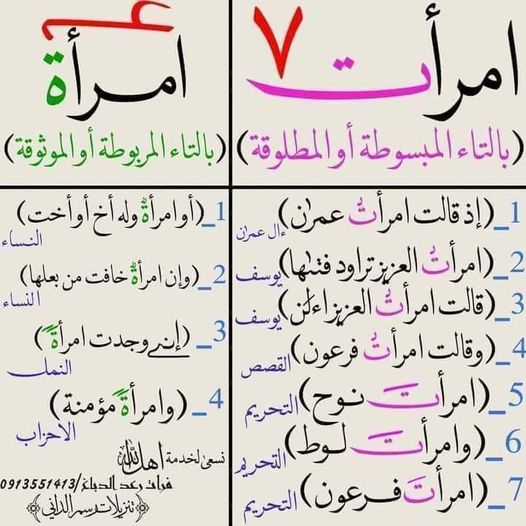 امرأت ٧
(بالتاء المبسوطة أو المطلوقة)
1_(إذ قالت امرأتُ عمران) ءال عمران
2_(امرأتُ العزيز تراود فتىٰها) يوسف
3_(قالت امرأتُ العزيز اءلٰن) يوسف
4_(وقالت امرأتُ فرعون) القصص
5_(امرأتَ نوح) التحريم
6_(وامرأتَ لوط) التحريم
7_(امرأتَ فرعون) التحريم
امرأة ٤
(بالتاء المربوطة أو الموثوقة)
1_(أو امرأةٌ وله أخ أو أخت) النساء
2_(وإن امرأةٌ خافت من بعلها) النساء
3_(إني وجدت امرأةً) النمل
4_(وامرأةً مؤمنة) الاحزاب
نسعى لخدمة اهل الله
رعد الدباغ/0913551413
تنزيلات رسم الداني